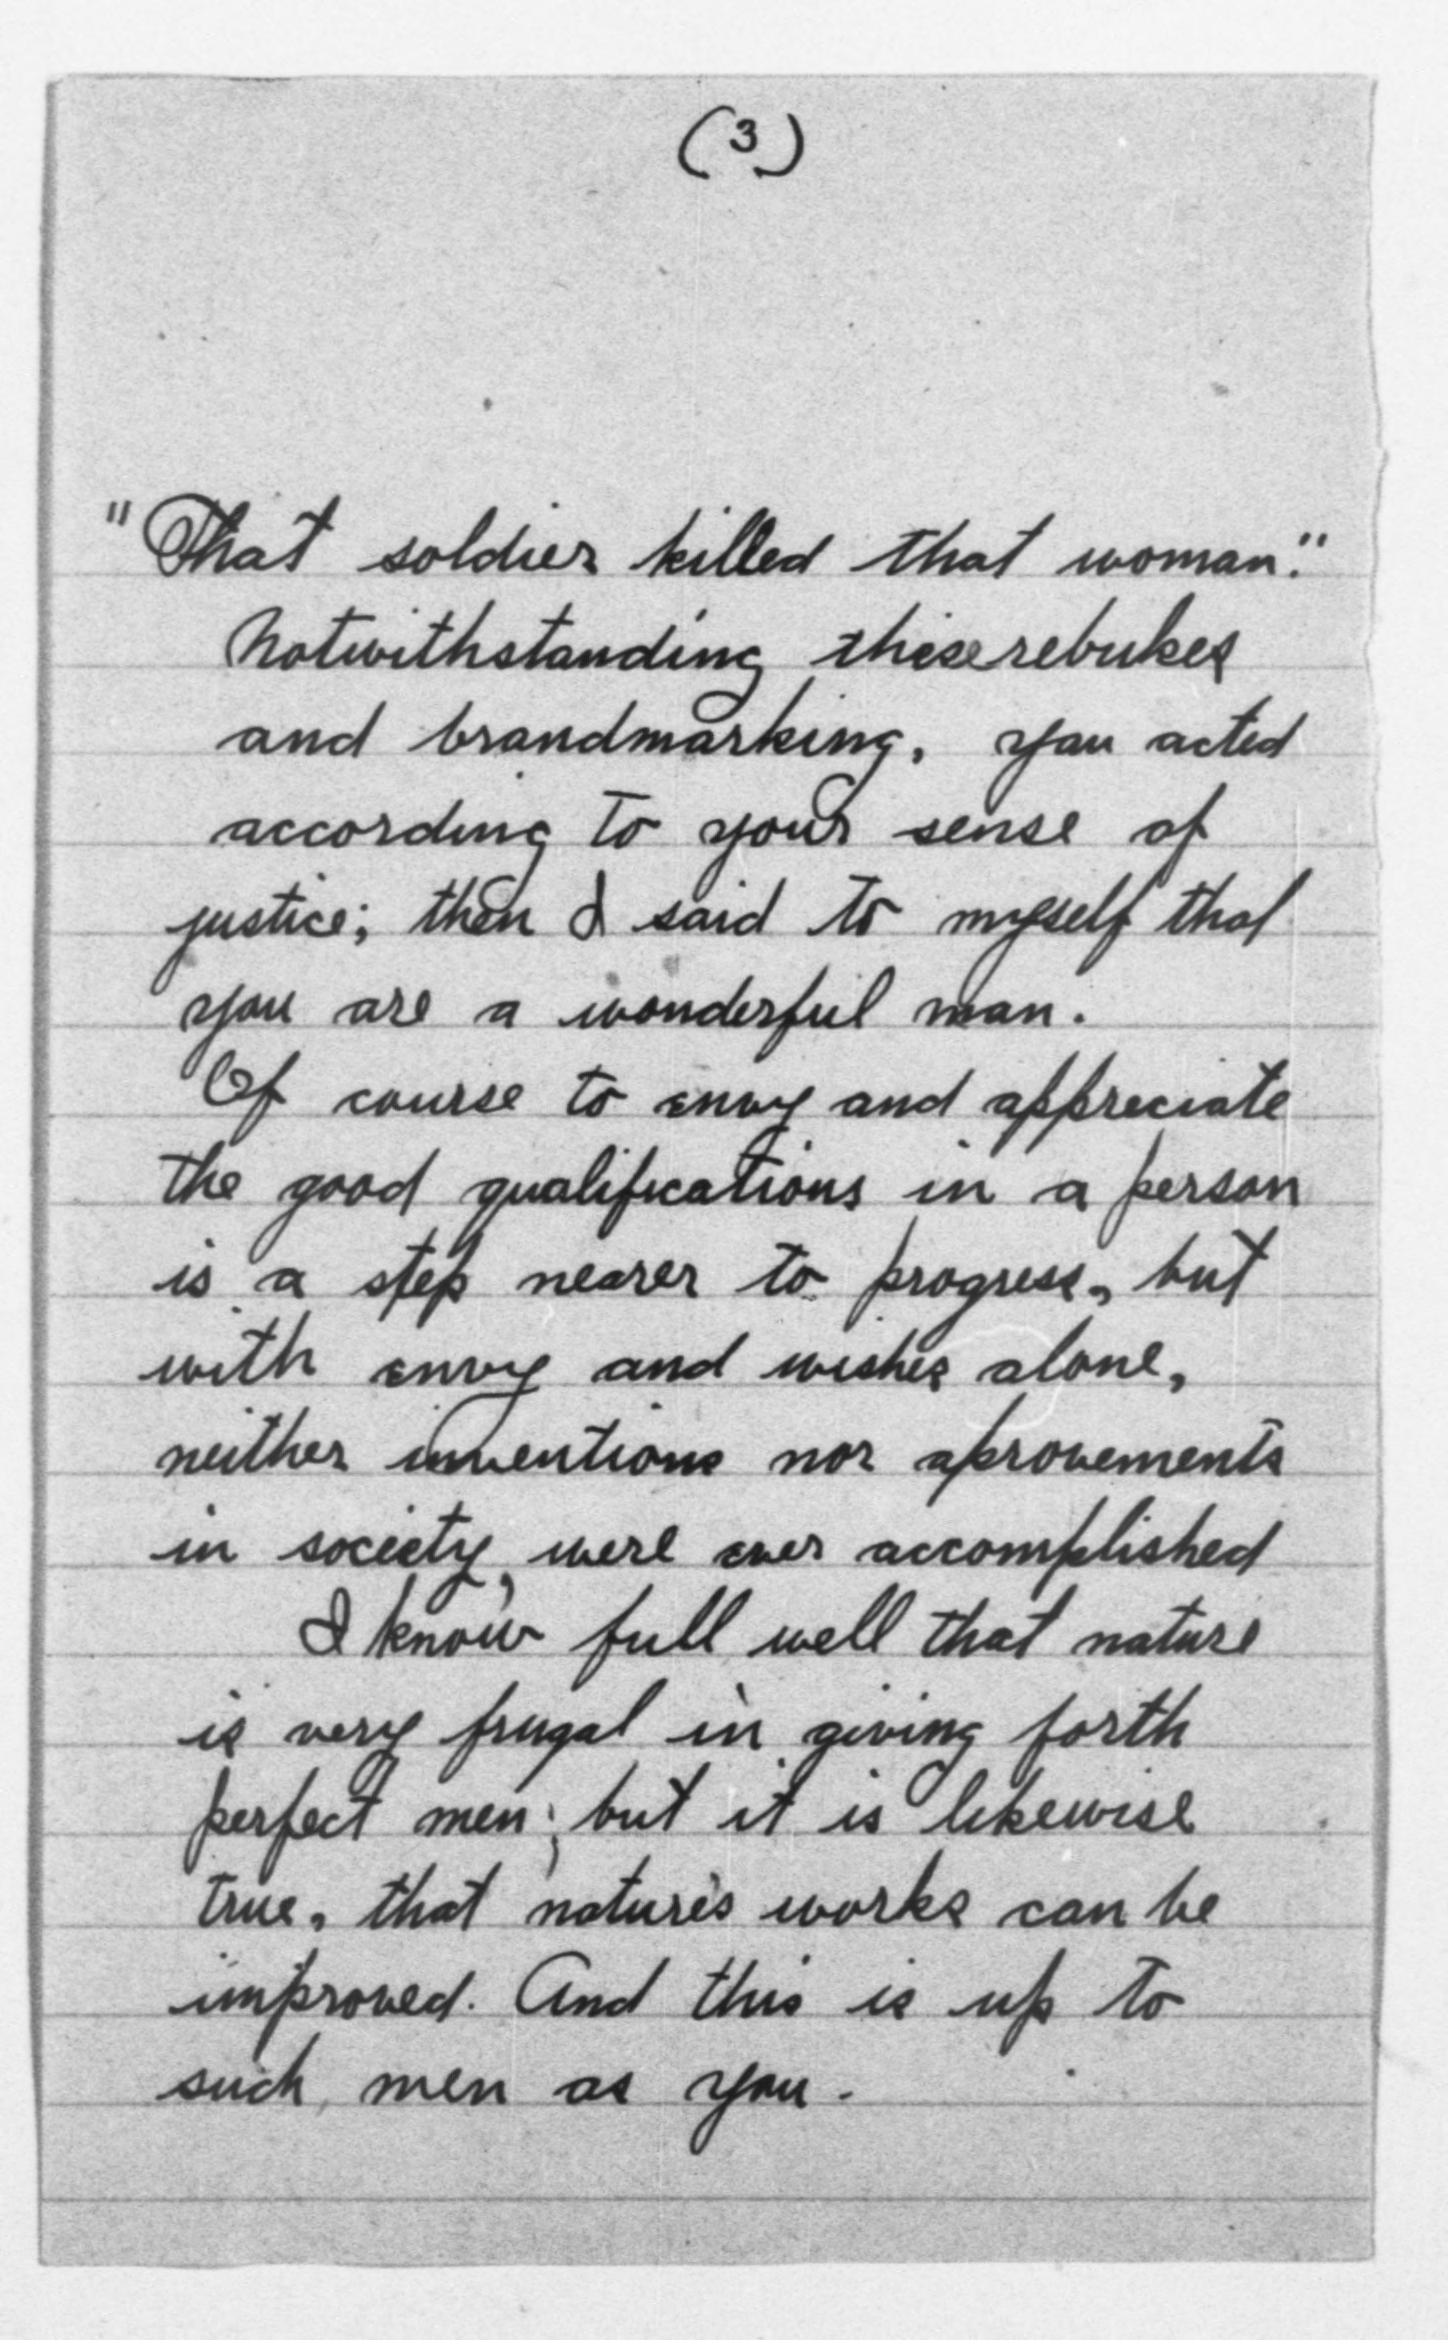 (3)
"That soldier killed that woman."
Notwithstanding these rebukes
and brandmarking, you acted
according to your sense of
justice; then I said to myself that
you are a wonderful man.
Of course to envy and appreciate
the good qualifications in a person
is a step nearer to progress, but
with envy and wishes alone,
neither inventions nor aprovements
in society, were ever accomplished
I know full well that nature
is very frugal in giving forth
perfect men; but it is likewise
true, that nature's works can be
improved. And this is up to
such men as you.